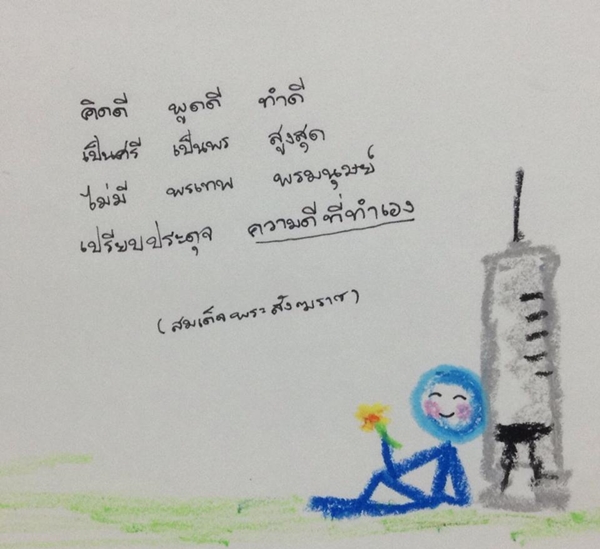 คิดดี พูดดี ทำดี
เป็นศรี เป็นพร สูงสุด
ไม่มี พรเทพ พรมนุษย์
เปรียบประดุจ ความดีที่ทำเอง
(สมเด็จพระสังฆราช)